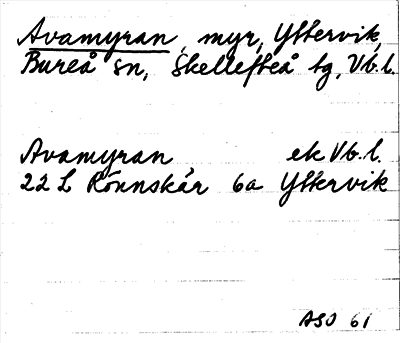 Avamyran, myr, Yttervik,
Bureå sn, Skellefteå tg, Vb.l.
Avamyran ek Vb.l.
22 L Rönnskär 6a Yttervik
ASO 61